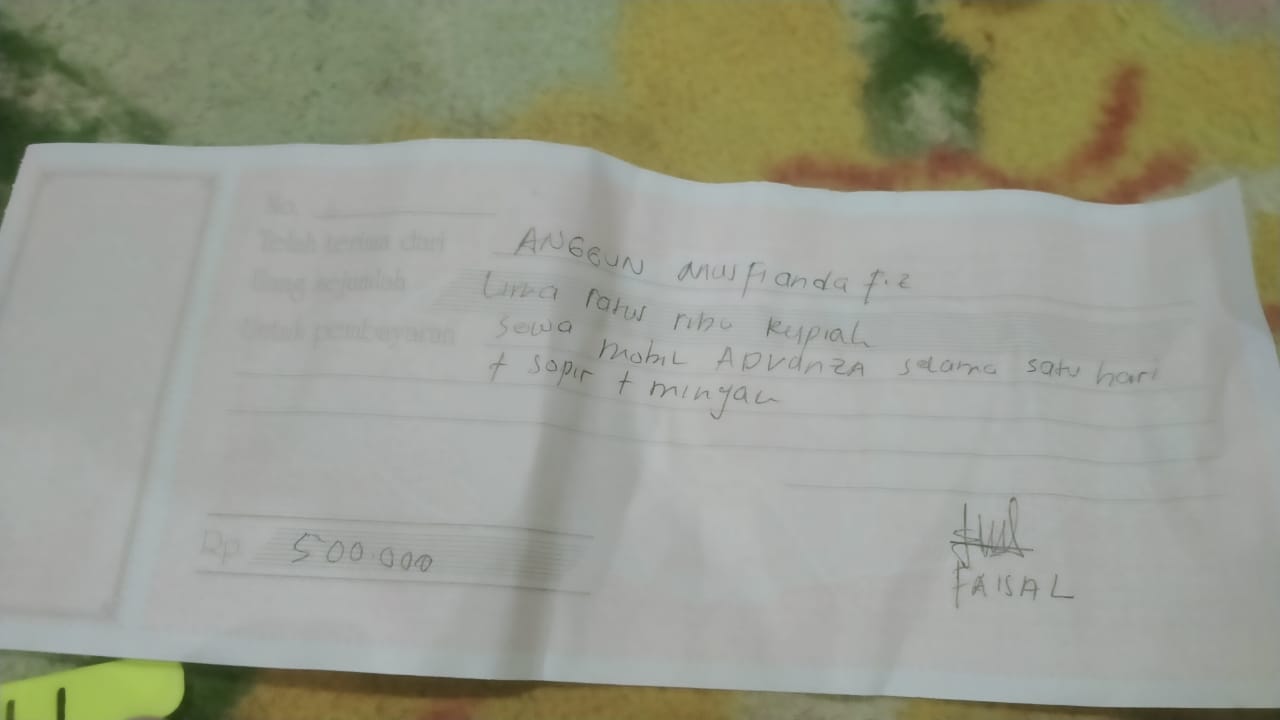 No.
Telah terima dari ANGGUN Musfianda f.z
Uang sejumlah Lima ratus ribu Rupiah
Untuk pembayaran sewa mobil ADVANZA selama satu hari
+ sopir + minyak
Rp. 500.000
FAISAL